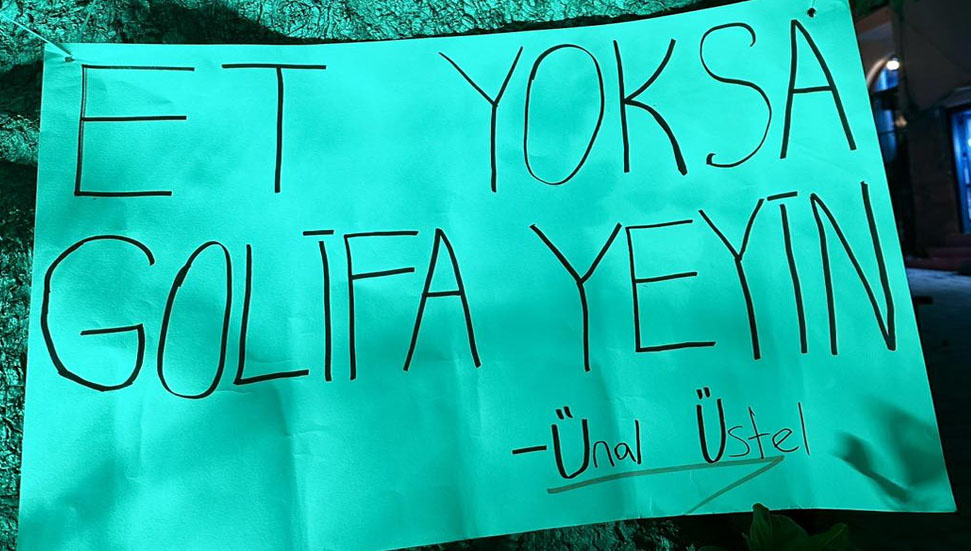 ET YOKSA
GOLİFA YEYİN
-Ünal Üstel